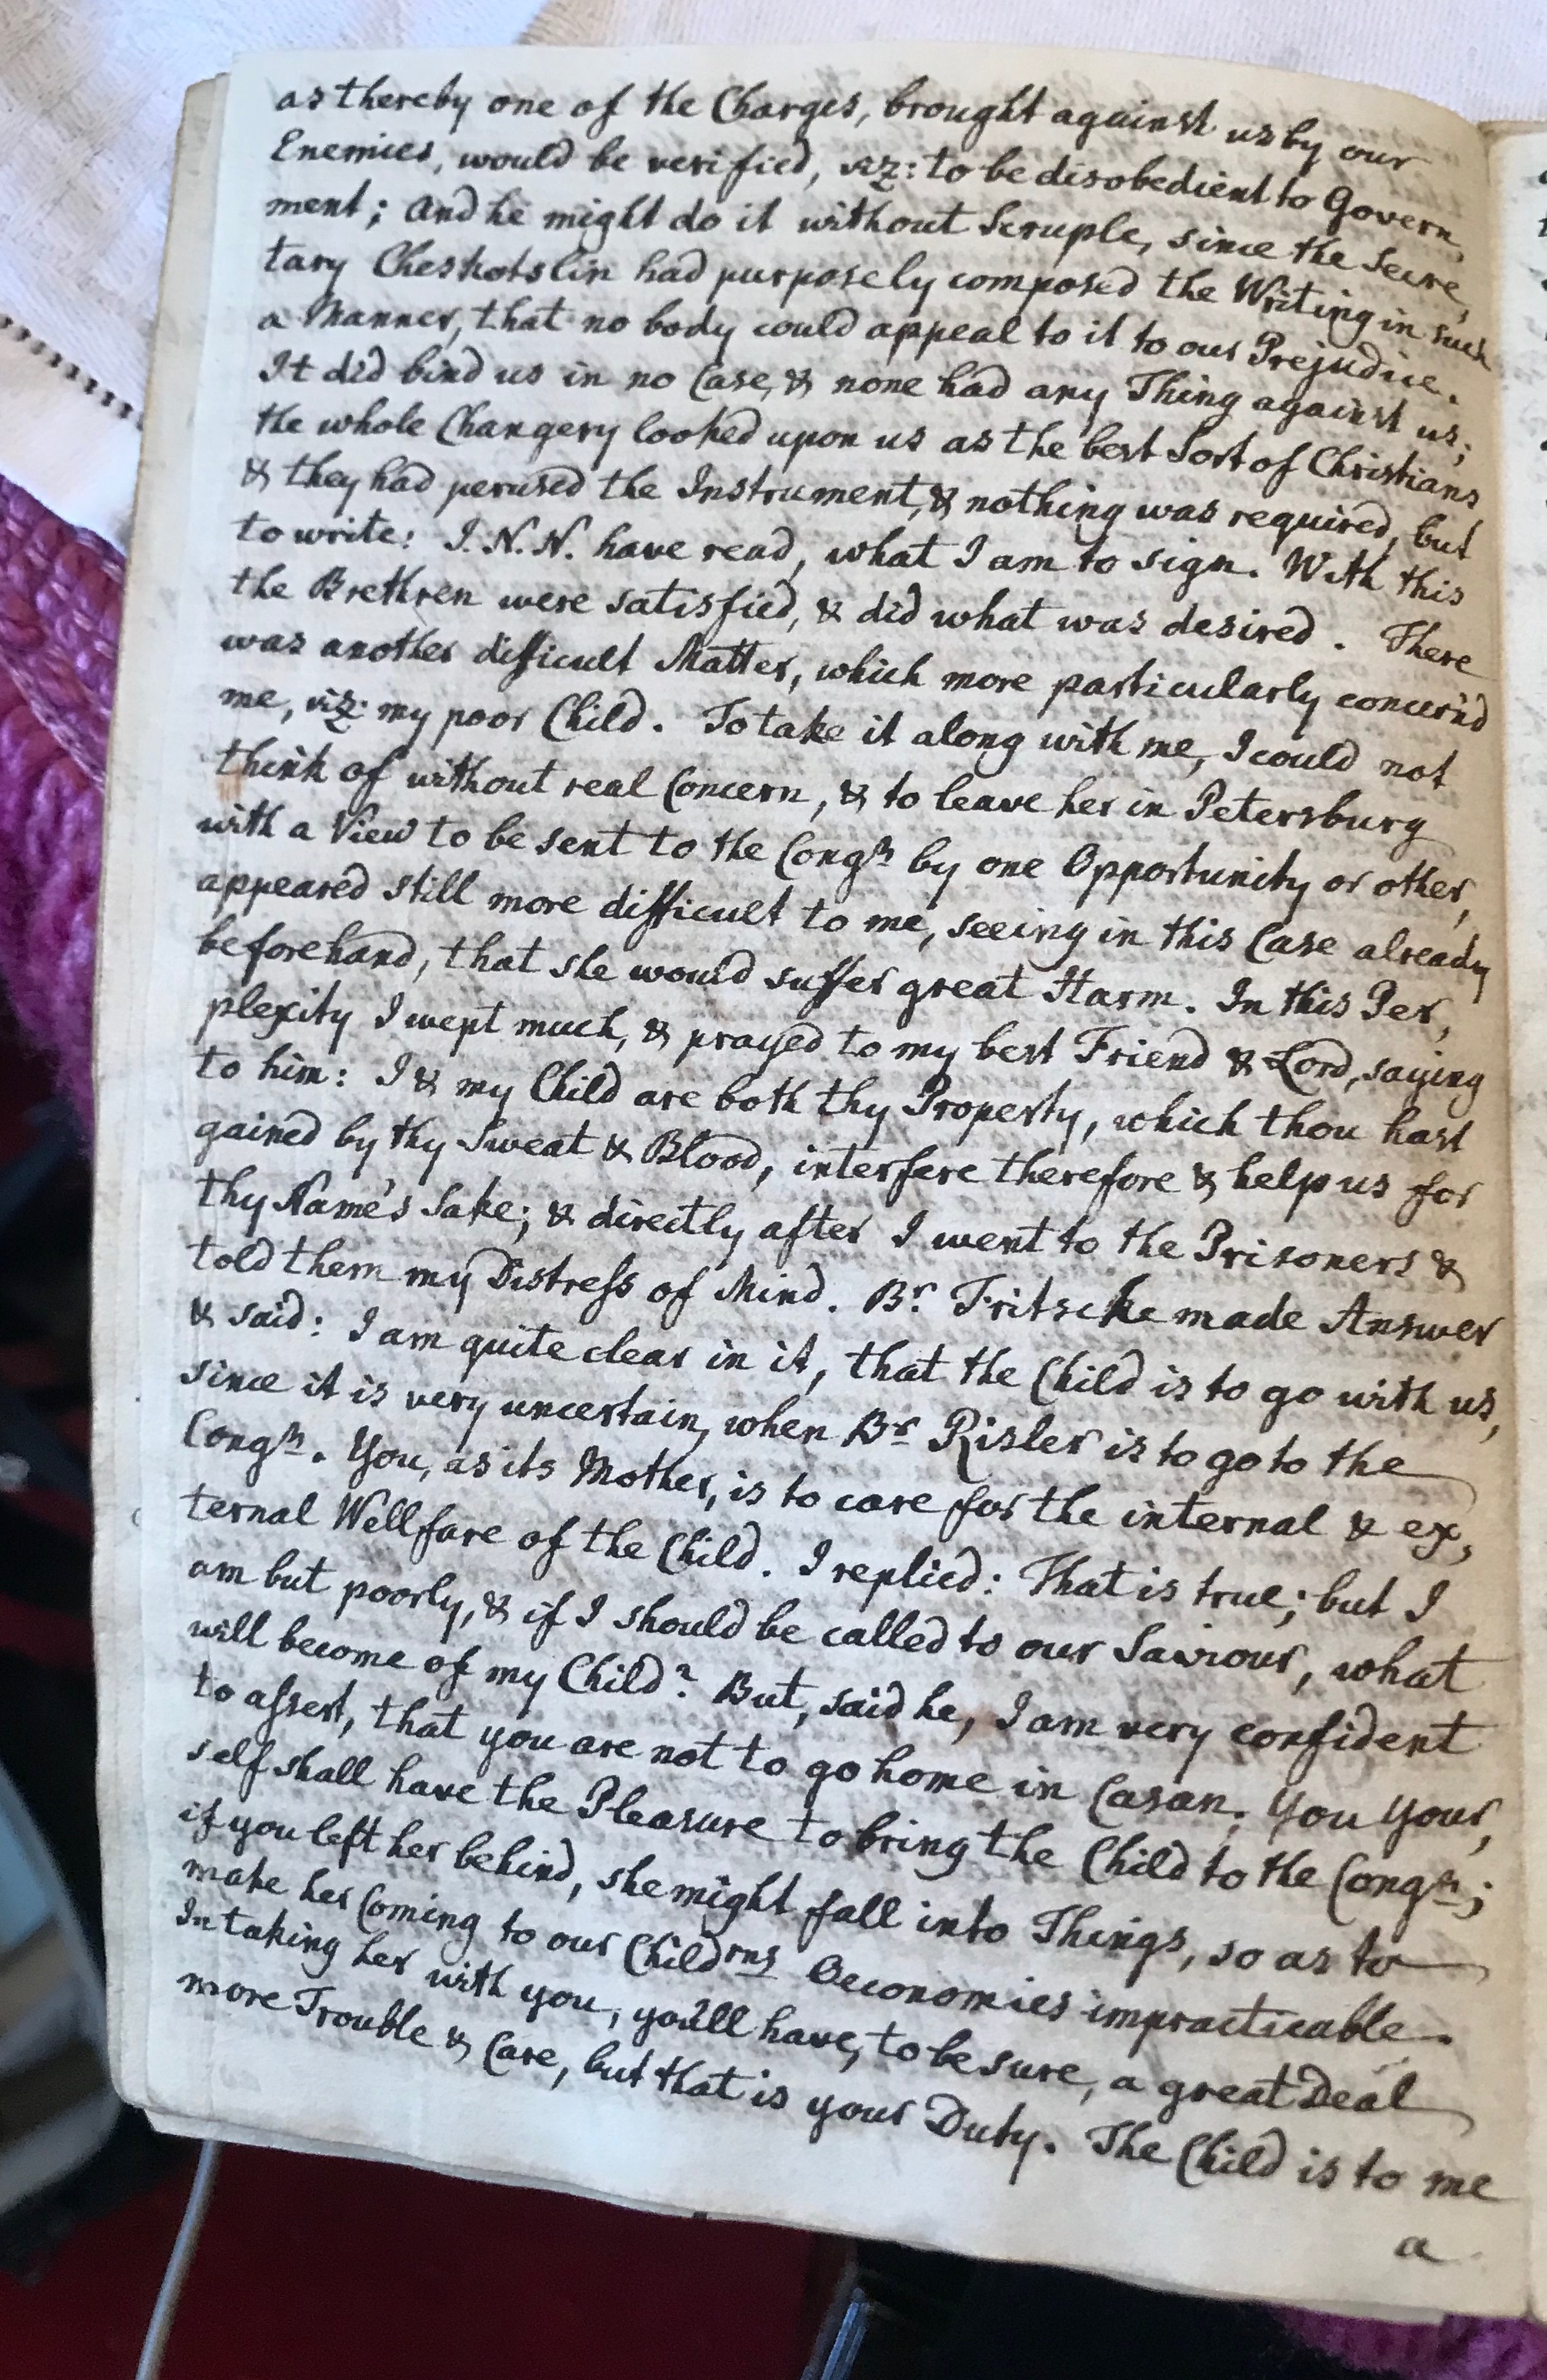 as thereby one of the Charges, brought against us by our
Enemies, would be verified, viz: to be disobedient to Govern,
ment; and he might do it without Scruple, since the Secre,
tary Cheskotslin had purposely composed the Writing in such
a Manner, that no body could appeal to it to our Prejudice.
It did bind us in no Case, & none had any Thing against us;
the whole Changery looked upon us as the best Sort of Christians
& they had perused the Instrument, & nothing was required, but
to write: I. N. N. have read, what I am to sign. With this
the Brethren were satisfied, & did what was desired. There
was another difficult Matter, which more particularly concern'd
me, viz: my poor Child. To take it along with me, I could not
think of without real Concern, & to leave her in Petersburg
with a View to be sent to the Congn by one Opportunity or other,
appeared still more difficult to me, seeing in this Case already
beforehand, that she would suffer great Harm. In this Per,
plexity I wept much, & prayed to my best Friend & Lord, saying
to him: I & my Child are both thy Property, which thou hast
gained by thy Sweat & Blood, interfere therefore & help us for
thy Name's Sake; & directly after I went to the Prisoners &
told them my Distress of Mind. Br. Fritsche made Answer
& said: I am quite clear in it, that the Child is to go with us,
since it is very uncertain, when Br Risler is to go to the
Congn. You, as its Mother, is to care for the internal & ex,
ternal Wellfare of the Child. I replied: That is true; but I
am but poorly, & if I should be called to our Saviour, what
will become of my Child? But, said he, I am very confident
to assert, that you are not to go home in Casan. You Your,
self shall have the Pleasure to bring the Child to the Congn;
if you left her behind, she might fall into Things, so as to
make her Coming to our Childrns Oeconomies impracticable.
In taking her with you, you'll have, to be sure, a great Deal
more Trouble & Care, but that is your Duty. The Child is to me
a